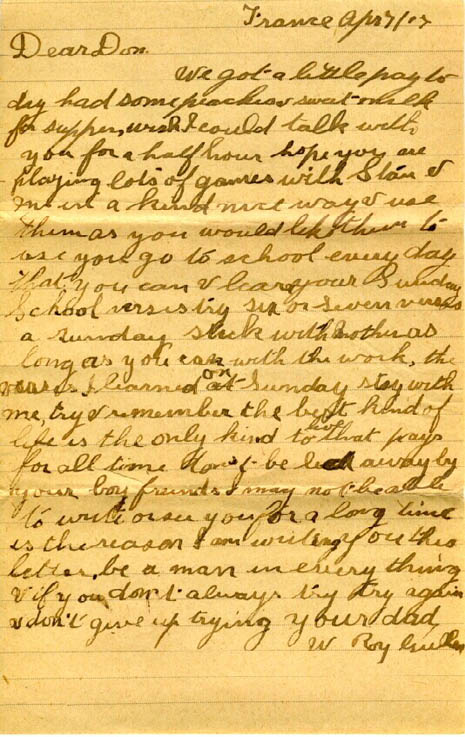 France Apr 7/17
Dear Don.
We got a little pay to
day had some peaches & sweat milk
for supper, wish I could talk with
you for a half hour hope you are
playing lots of games with Stan &
in a kind nice way & use
them as you would like them to
use you go to school every day
that you can & learn your Sunday
School verses try six or seven verses
a Sunday stick with Mother as
long as you can with the work, the
verses I learned on at Sunday stay with
me, try & remember the best kind of
life is the only kind to live that pays
for all time don't be led away by
your boy friends I may not be able
to write or see you for a long time
is the reason I am writing you this
letter, be a man in every thing
& if you don't always try try again
& don't give up trying your dad
W Roy